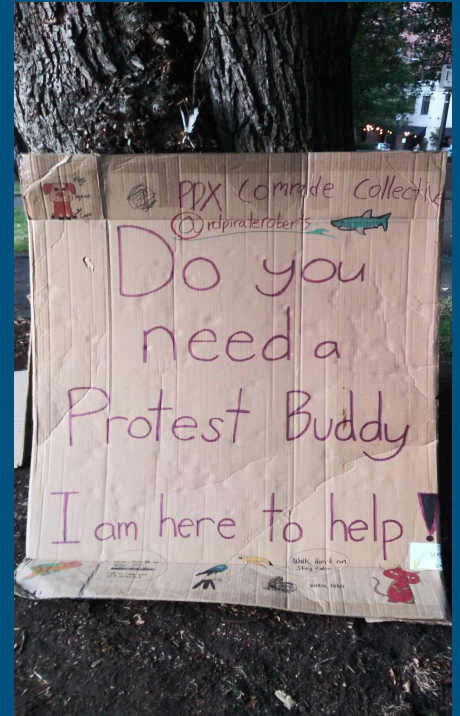 PDX Comrade Collective
@rdpirateroberts
Do you
need a
Protest Buddy
I am here to help!
Walk don't run
Stay calm